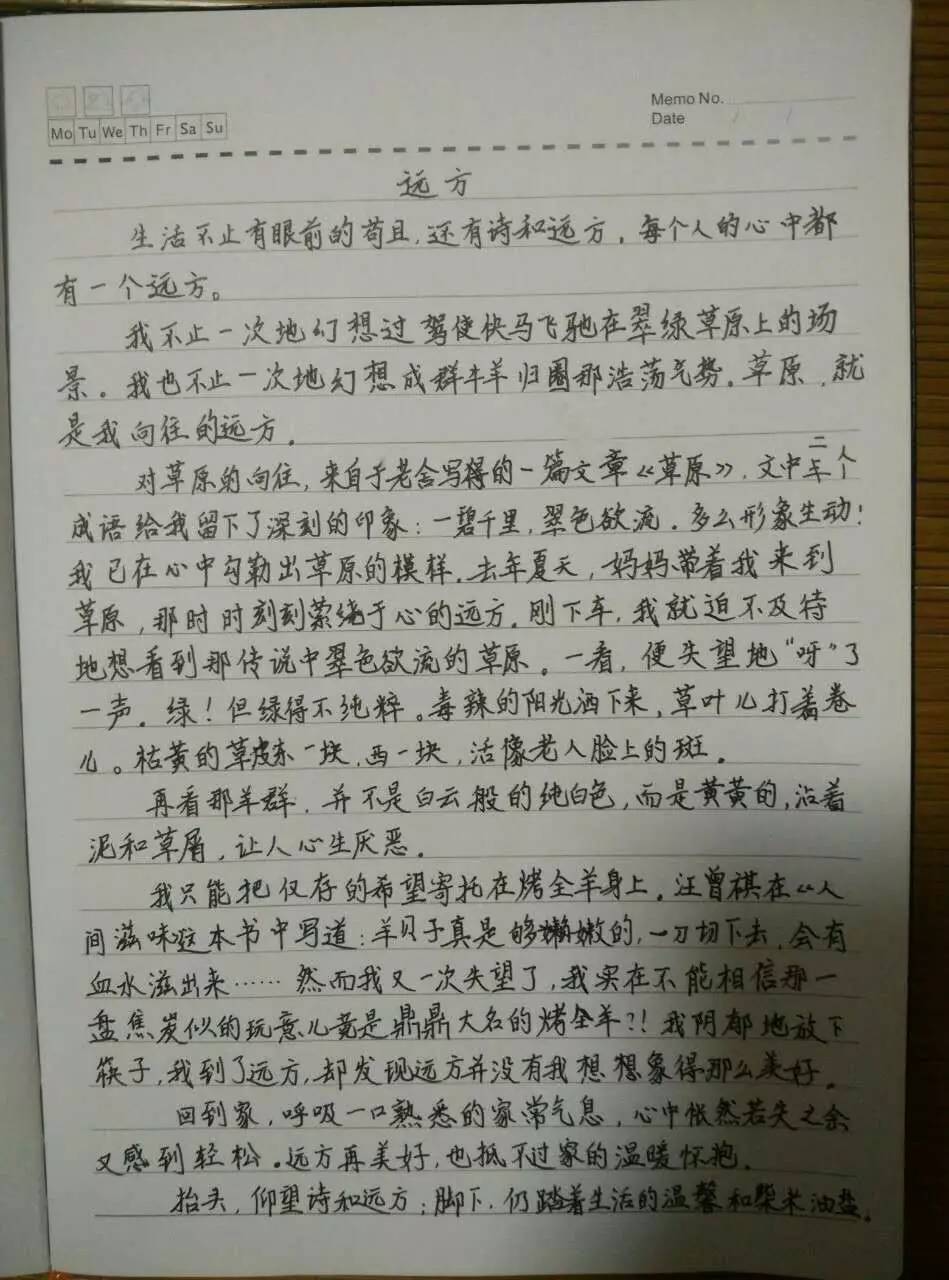 Memo No.
Mo Tu We Th Fr Sa Su
Date / /
远方
生活不止有眼前的苟且,还有诗和远方。每个人的心中都
有一个远方。
我不止一次地幻想过驾使快马飞驰在翠绿草原上的场
景。我也不止一次地幻想成群牛羊归圈那浩荡气势。草原,就
是我向往的远方。
对草原的向往,来自于老舍写得的一篇文章《草原》,文中二个人
成语给我留下了深刻的印象:一碧千里,翠色欲流。多么形象生动!
我已在心中勾勒出草原的模样。去年夏天,妈妈带着我来到
草原,那时时刻刻萦绕于心的远方。刚下车,我就迫不及待
地想看到那传说中翠色欲流的草原。一看,便失望地“呀”了
一声。绿!但绿得不纯粹。毒辣的阳光洒下来,草叶儿打着卷
儿。枯黄的草皮东一块,西一块,活像老人脸上的斑。
再看那羊群,并不是白云般的纯白色,而是黄黄的,沾着
泥和草屑,让人心生厌恶。
我只能把仅存的希望寄托在烤全羊身上。汪曾祺在《人
间滋味这本书中写道:羊贝子真是够嫩的,一刀切下去,会有
血水滋出来……然而我又一次失望了,我实在不能相信那一
盘焦炭似的玩意儿竟是鼎鼎大名的烤全羊?!我阴郁地放下
筷子,我到了远方,却发现远方并没有我想想象得那么美好。
回到家,呼吸一口熟悉的家常气息,心中怅然若失之余
又感到轻松。远方再美好,也抵不过家的温暖怀抱。
抬头,仰望诗和远方;脚下,仍踏着生活的温馨和柴米油盐。